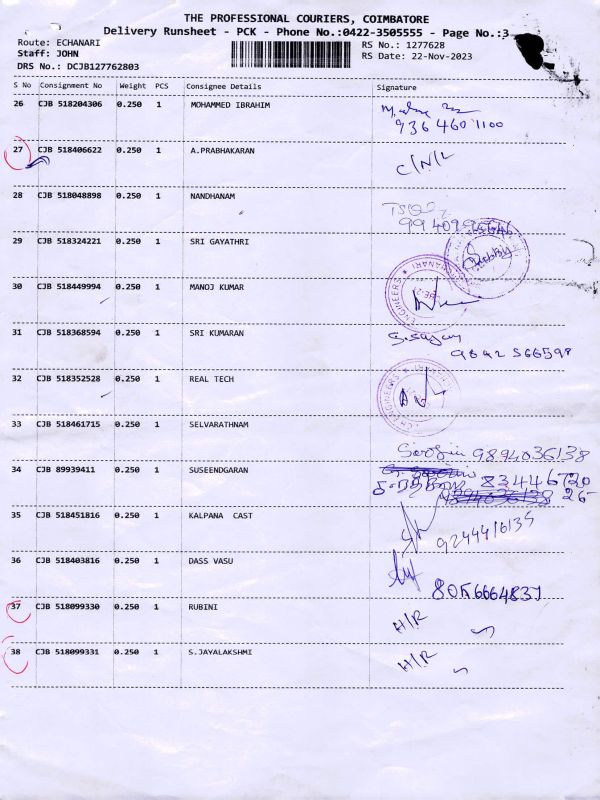 THE PROFESSIONAL COURIERS, COIMBATORE
Delivery Runsheet - PCK - Phone No.:0422-3505555 - Page No.:3
Route: ECHANARI
RS No.: 1277628
Staff: JOHN
RS Date: 22-Nov-2023
DRS No.: DCJB127762803
S No Consignment No Weight PCS Consignee Details Signature
26 CJB 518204306 0.250 1 MOHAMMED IBRAHIM
936 460 1100
27 CJB 518406622 0.250 1 A.PRABHAKARAN C/N/L
28 CJB 518048898 0.250 1 NANDHANAM
29 CJB 518324221 0.250 1 SRI GAYATHRI
30 CJB 518449994 0.250 1 MANOJ KUMAR
ENGINEERS
31 CJB 518368594 0.250 1 SRI KUMARAN
9842 566598
32 CJB 518352528 0.250 1 REAL TECH
ENGINEERS
33 CJB 518461715 0.250 1 SELVARATHNAM
9894036138
34 CJB 89939411 0.250 1 SUSEENDGARAN
83446720
26
35 CJB 518451816 0.250 1 KALPANA CAST
9244416135
36 CJB 518403816 0.250 1 DASS VASU
37 CJB 518099330 0.250 1 RUBINI H/R
38 CJB 518099331 0.250 1 S.JAYALAKSHMI H/R